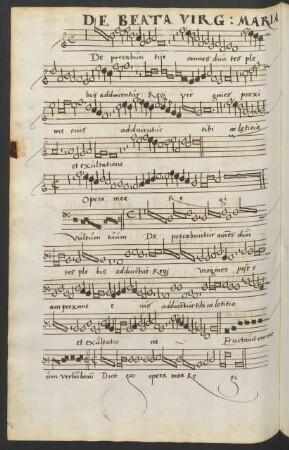 DE BEATA VIRG: MARIA
De precabun tur omnes divi tes ple
bis adducentur Regi vir gines proxi
me eius adducentur tibi in letitia
et exultatione
Opera mea Re gi
Vultum tuum De precabuntur omes divi
tes ple bis adducentur Regi virgines post e
am proxime e ius adducentur tibi in letitia
et exultatio ne Eructavit cor me
um verbum bonu Dico ego opera mea Re gi